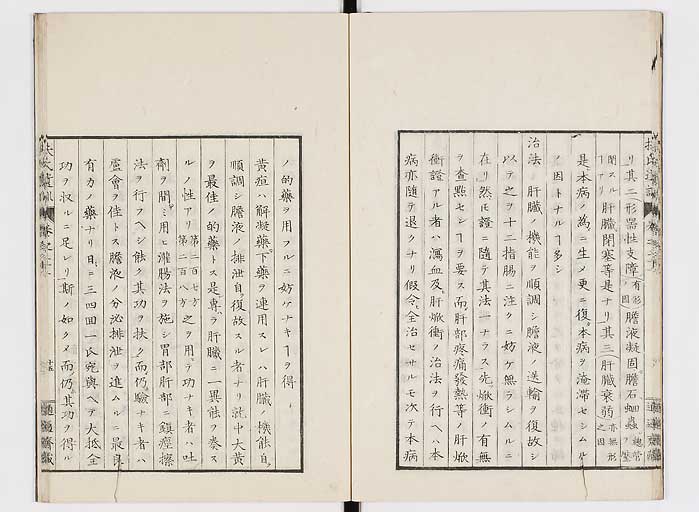 リ其二形器性支障有形ノ因膽液凝固膽石蛔蟲
閉スル肝臓閉塞等是ナリ其三肝臓衰弱亦無形之因
是本病ノ為ニ生メ更ニ復本病ヲ淹滞セシムル
ノ因トナルヿ多シ
治法 肝臓ノ機能ヲ順調シ膽液ノ送輸ヲ復故シ
以テ之ヲ十二指腸ニ注クニ妨ケ無ラシムルニ
在リ然ヒ證ニ隨テ其法一ナラス先焮衝ノ有無
ヲ査點センヿヲ要ス而肝部疼痛發熱等ノ肝焮
衝證アル者ハ瀉血及肝焮衝ノ治法ヲ行ヘハ本
病亦隨テ退クナリ假令全治セサルモ次テ本病
ノ的藥ヲ用フルニ妨ケナキヿヲ得
黄疸ハ解凝藥下藥ヲ連用スレハ肝臓ノ機能自
順調シ膽液ノ排泄自復故スル者ナリ就中大黄
ヲ最佳ノ的藥トス是專ラ肝臓ニ一異能ヲ奏ス
ルノ性アリ第二百七方第二百八方之ヲ用テ功ナキ者ハ吐
劑ヲ間ミ用ヒ灌腸法ヲ施シ胃部肝部ニ鎮痙擦
法ヲ行フヘシ飲ク其功ヲ扶ク而仍驗ナキ者ハ
蘆會ヲ佳トス膽液ノ分泌排泄ヲ進ムルニ最良
有力ノ藥ナリ日ニ三四回一氏宛與ヘテ大抵全
功ヲ収ルニ足レリ斯ノ如クメ而仍其功ヲ得ル